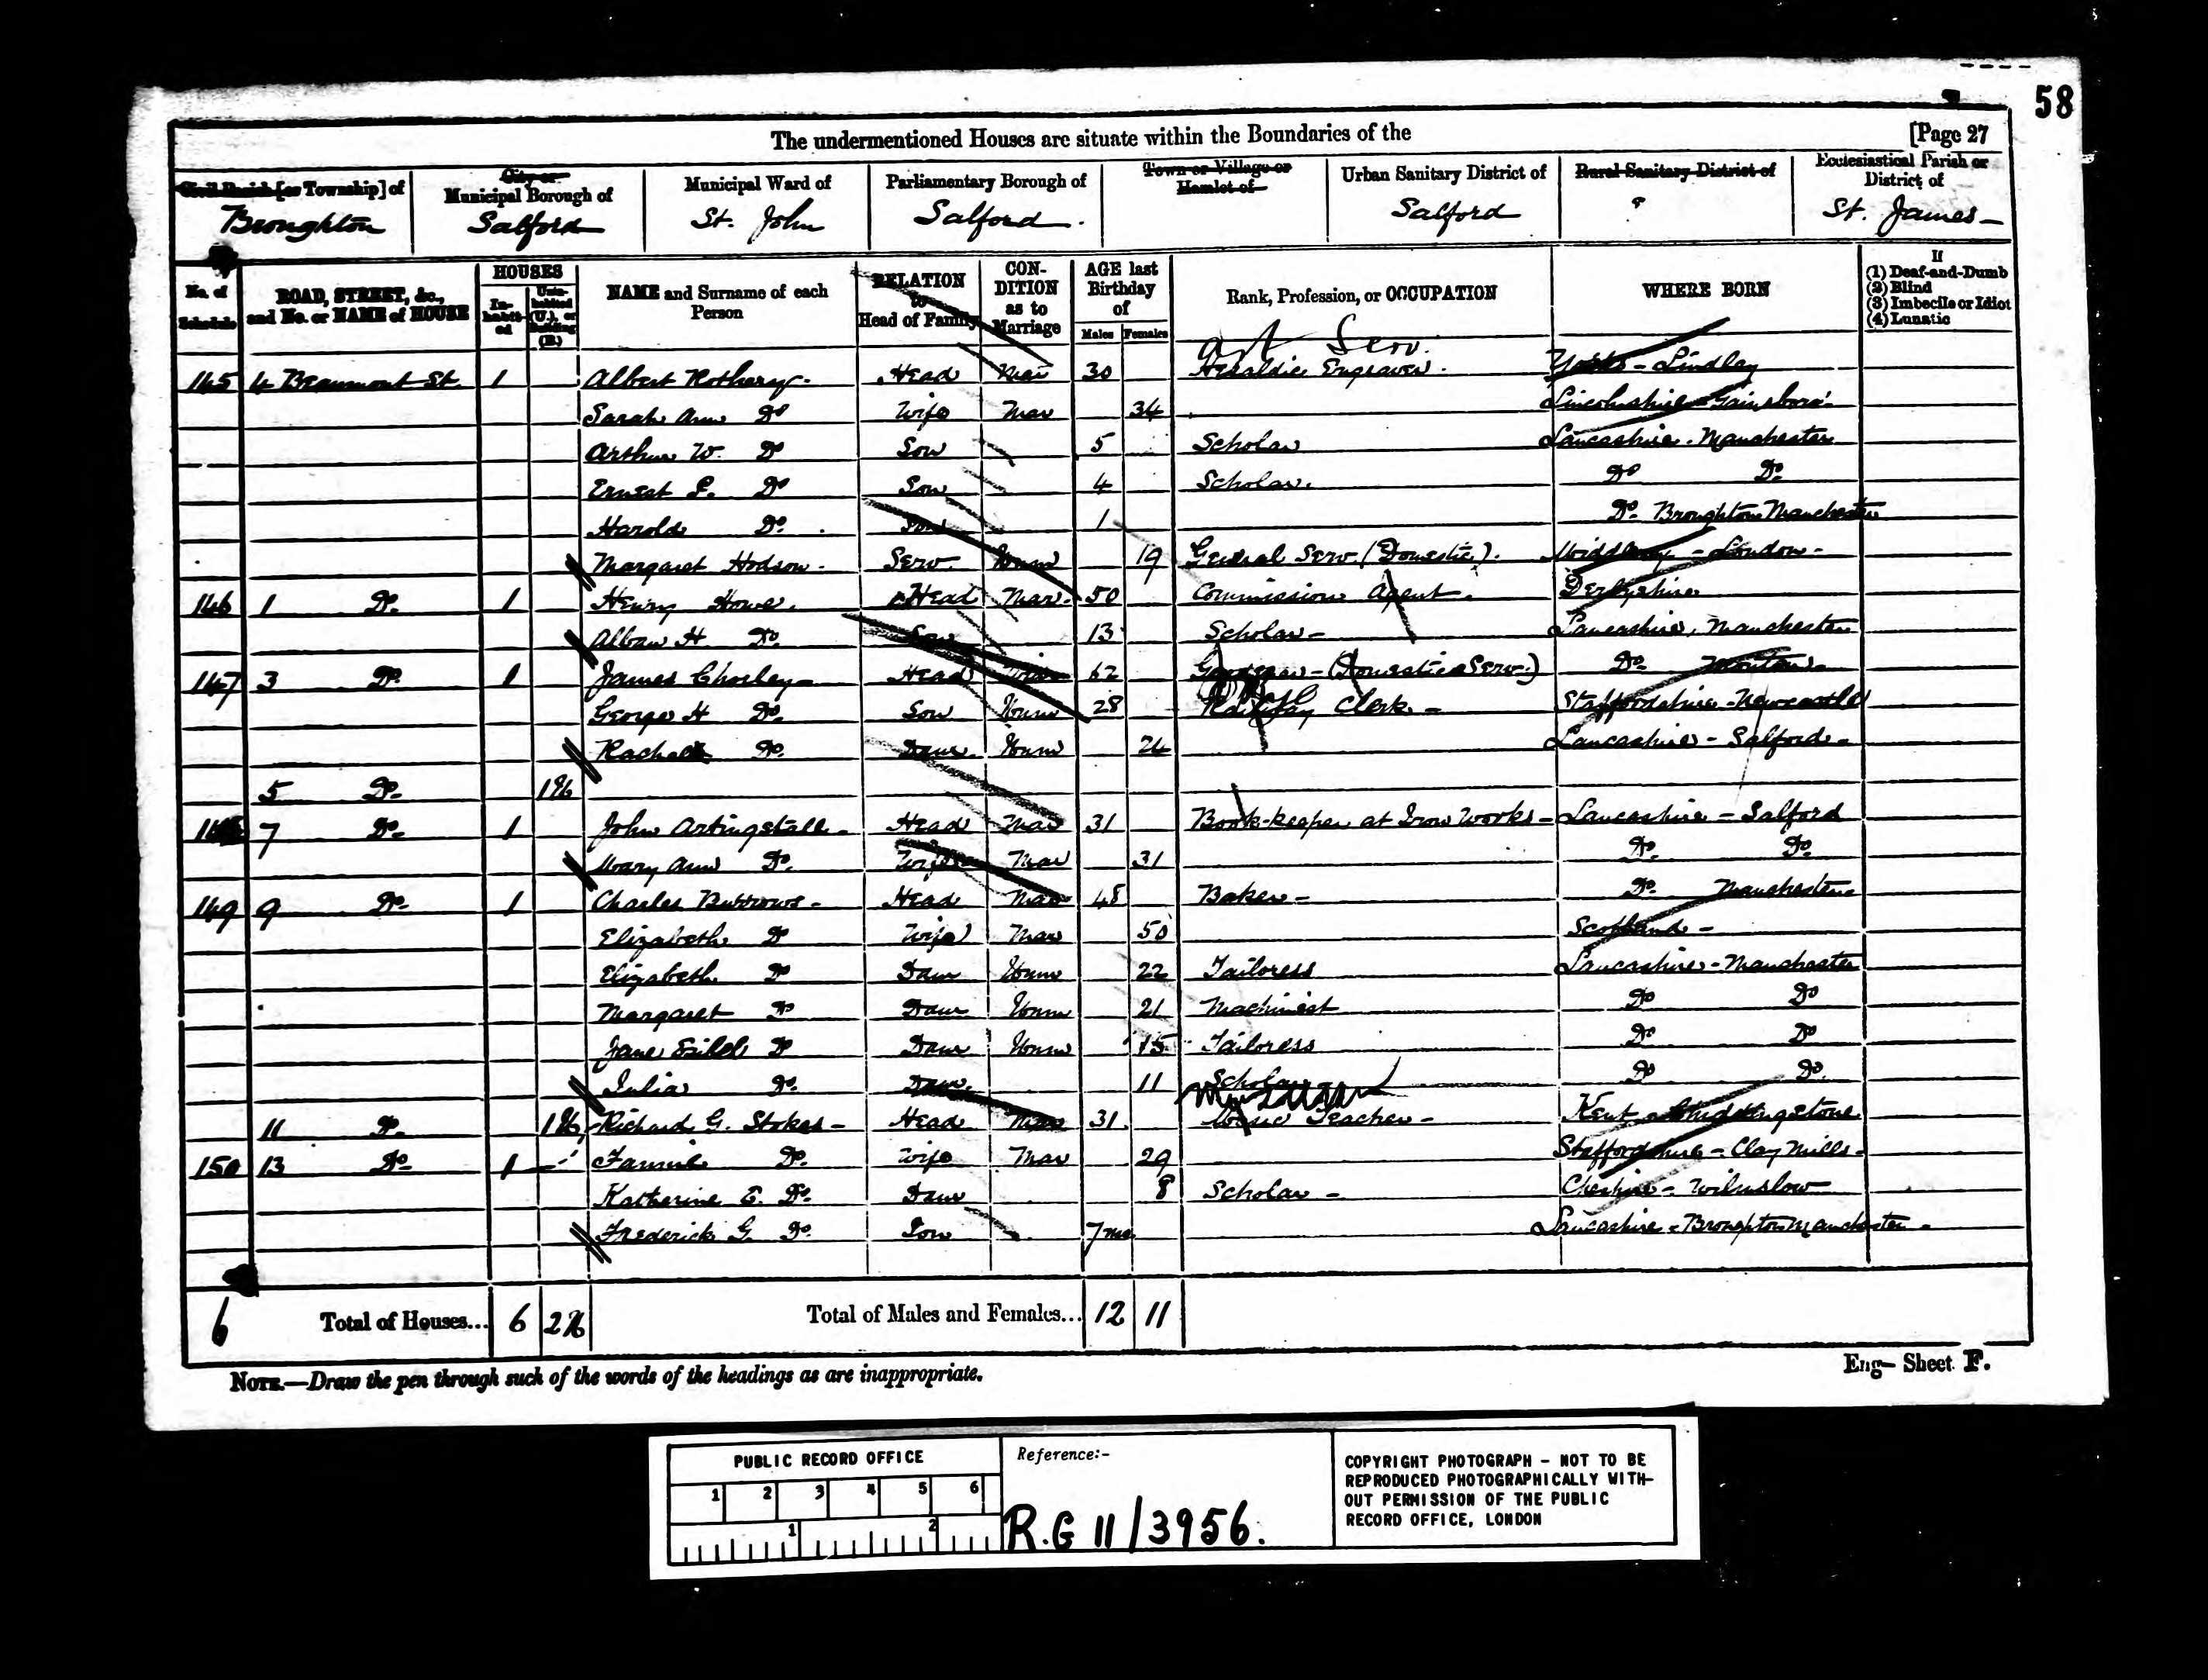 58
The undermentioned Houses are situate within the Boundaries of the [Page 27
Civil Parish [or Township] of City or Municipal Borough of Municipal Ward of Parliamentary Borough of Town or Village or Hamlet of Urban Sanitary District of Rural Sanitary District of Ecclesiastical Parish or District of
Broughton Salford St. John Salford. Salford St. James
No. of Schedule ROAD, STREET, &c., and No. or NAME of HOUSE HOUSES In-habit-ed Unin-habited (U.), or Building (B.) NAME and Surname of each Person RELATION to Head of Family CON-DITION as to Marriage AGE last Birthday of Males Females Rank, Profession, or OCCUPATION WHERE BORN If (1) Deaf-and-Dumb (2) Blind (3) Imbecile or Idiot (4) Lunatic
art Serv.
145 4 Beaumont St. 1 Albert Rothery Head Mar 30 Heraldic Engraver. Yorks - Lindley
Sarah Ann Do Wife Mar 34 Lincolnshire - Gainsboro'
Arthur W. Do Son 5 Scholar Lancashire. Manchester
Ernest Do Son 4 Scholar. Do Do
Harold Do. Son 1 Do. Broughton Manchester
Margaret Hodson - Serv Unm 19 General Serv. (Domestic). Middlesex - London -
146 1 Do. 1 Henry Howe. Head Mar. 50 Commission Agent. Derbyshire
Alban H. Do. Son 13 Scholar - Lancashire, Manchester
147 3 Do. 1 James Chorley - Head 62 (Domestic Serv.) Do.
George H Do. Son Unm 28 Clerk - Staffordshire - Newcastle
Rachael Do. Daur. Unm 24 Lancashire - Salford -
5 Do. 1
7 Do. 1 John Artingstall - Head Mar 31 Book-keeper at Iron Works - Lancashire - Salford
Mary Ann Do. Wife Mar 31 Do. Do.
149 9 Do. 1 Charles Burrows - Head Mar 48 Baker - Do. Manchester
Elizabeth Do Wife Mar 50 Scotland -
Elizabeth Do Daur Unm 22 Tailoress Lancashire - Manchester
Margaret Do Daur Unm 21 Machinist Do Do
Jane Do Daur Unm 15 Tailoress Do Do
Julia Do. Daur. 11 Scholar Do Do.
11 Do. 1 Richard G. Stokes - Head Mar 31. Music Teacher - Kent - Chiddingstone
150 13 Do. 1 Fannie Do. Wife Mar 29 Staffordshire - Clay Mills -
Katherine E. Do. Daur 8 Scholar - Cheshire - Wilmslow
Frederick G. Do. Son 7 mo Lancashire - Broughton Manchester -
6 Total of Houses... 6 2 Total of Males and Females... 12 11
NOTE.—Draw the pen through such of the words of the headings as are inappropriate. Eng— Sheet F.
PUBLIC RECORD OFFICE
1 2 3 4 5 6
1 2
Reference:-
R.G 11/3956.
COPYRIGHT PHOTOGRAPH - NOT TO BE
REPRODUCED PHOTOGRAPHICALLY WITH-
OUT PERMISSION OF THE PUBLIC
RECORD OFFICE, LONDON